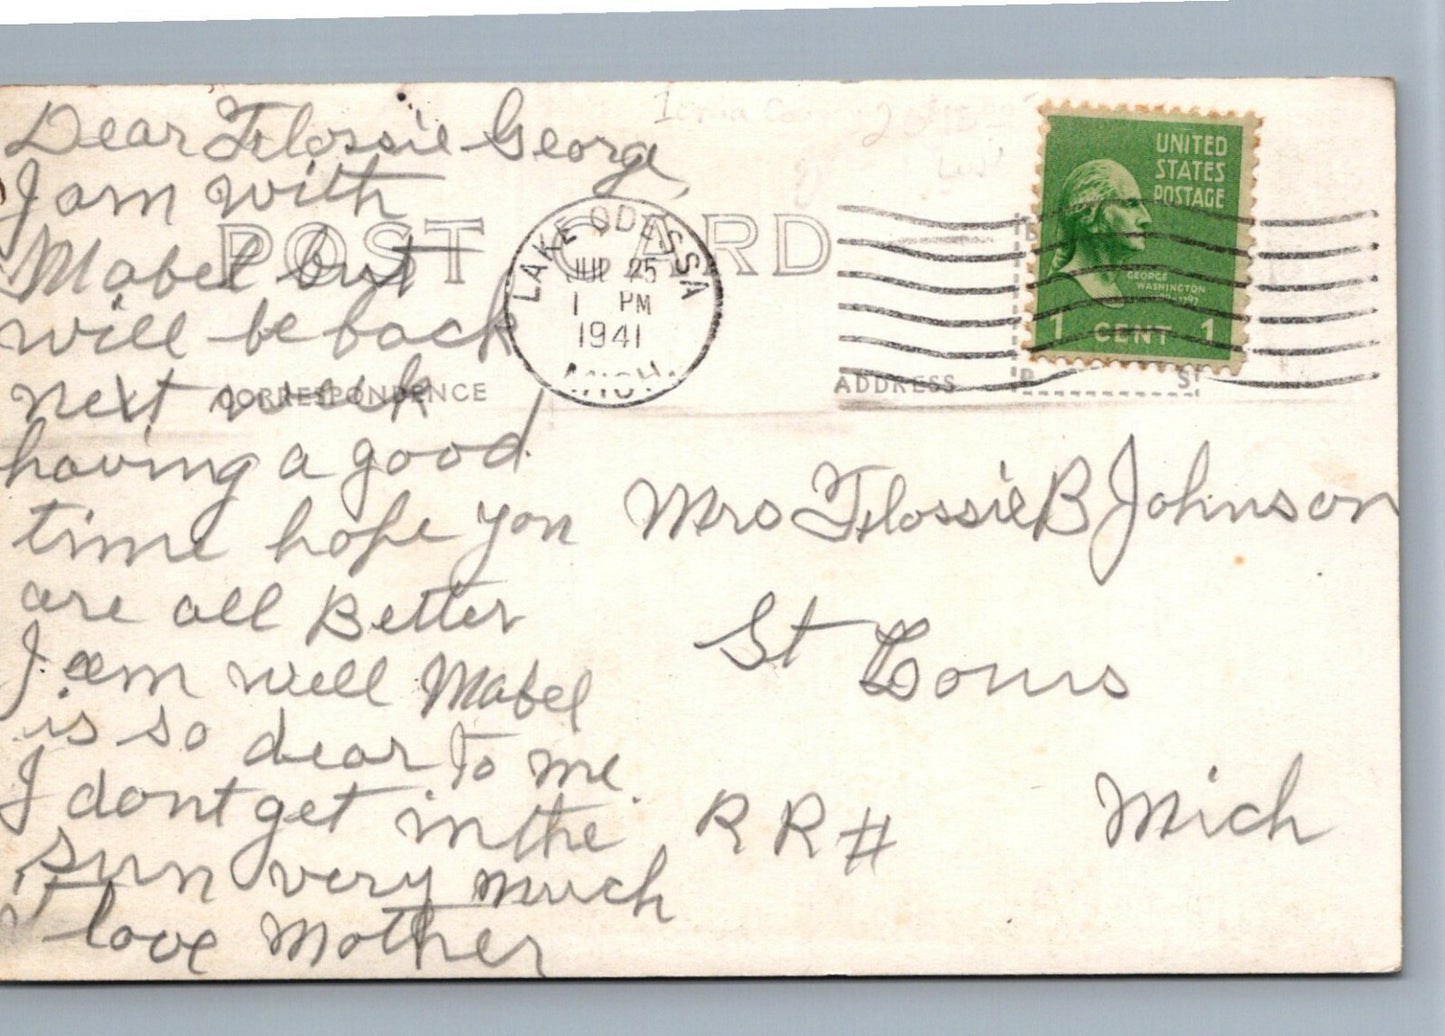 Dear Flossie George,
I am with
Mabel but
will be back
next week
having a good
time hope you
are all Better
I am well Mabel
is so dear to me.
I dont get in the
sun very much
love Mother
POST CARD
CORRESPONDENCE
ADDRESS
LAKE ODESSA
25
1 PM
1941
MICH.
UNITED
STATES
POSTAGE
GEORGE
WASHINGTON
1 CENT 1
Mrs Flossie B Johnson
St Louis
Mich
R R #